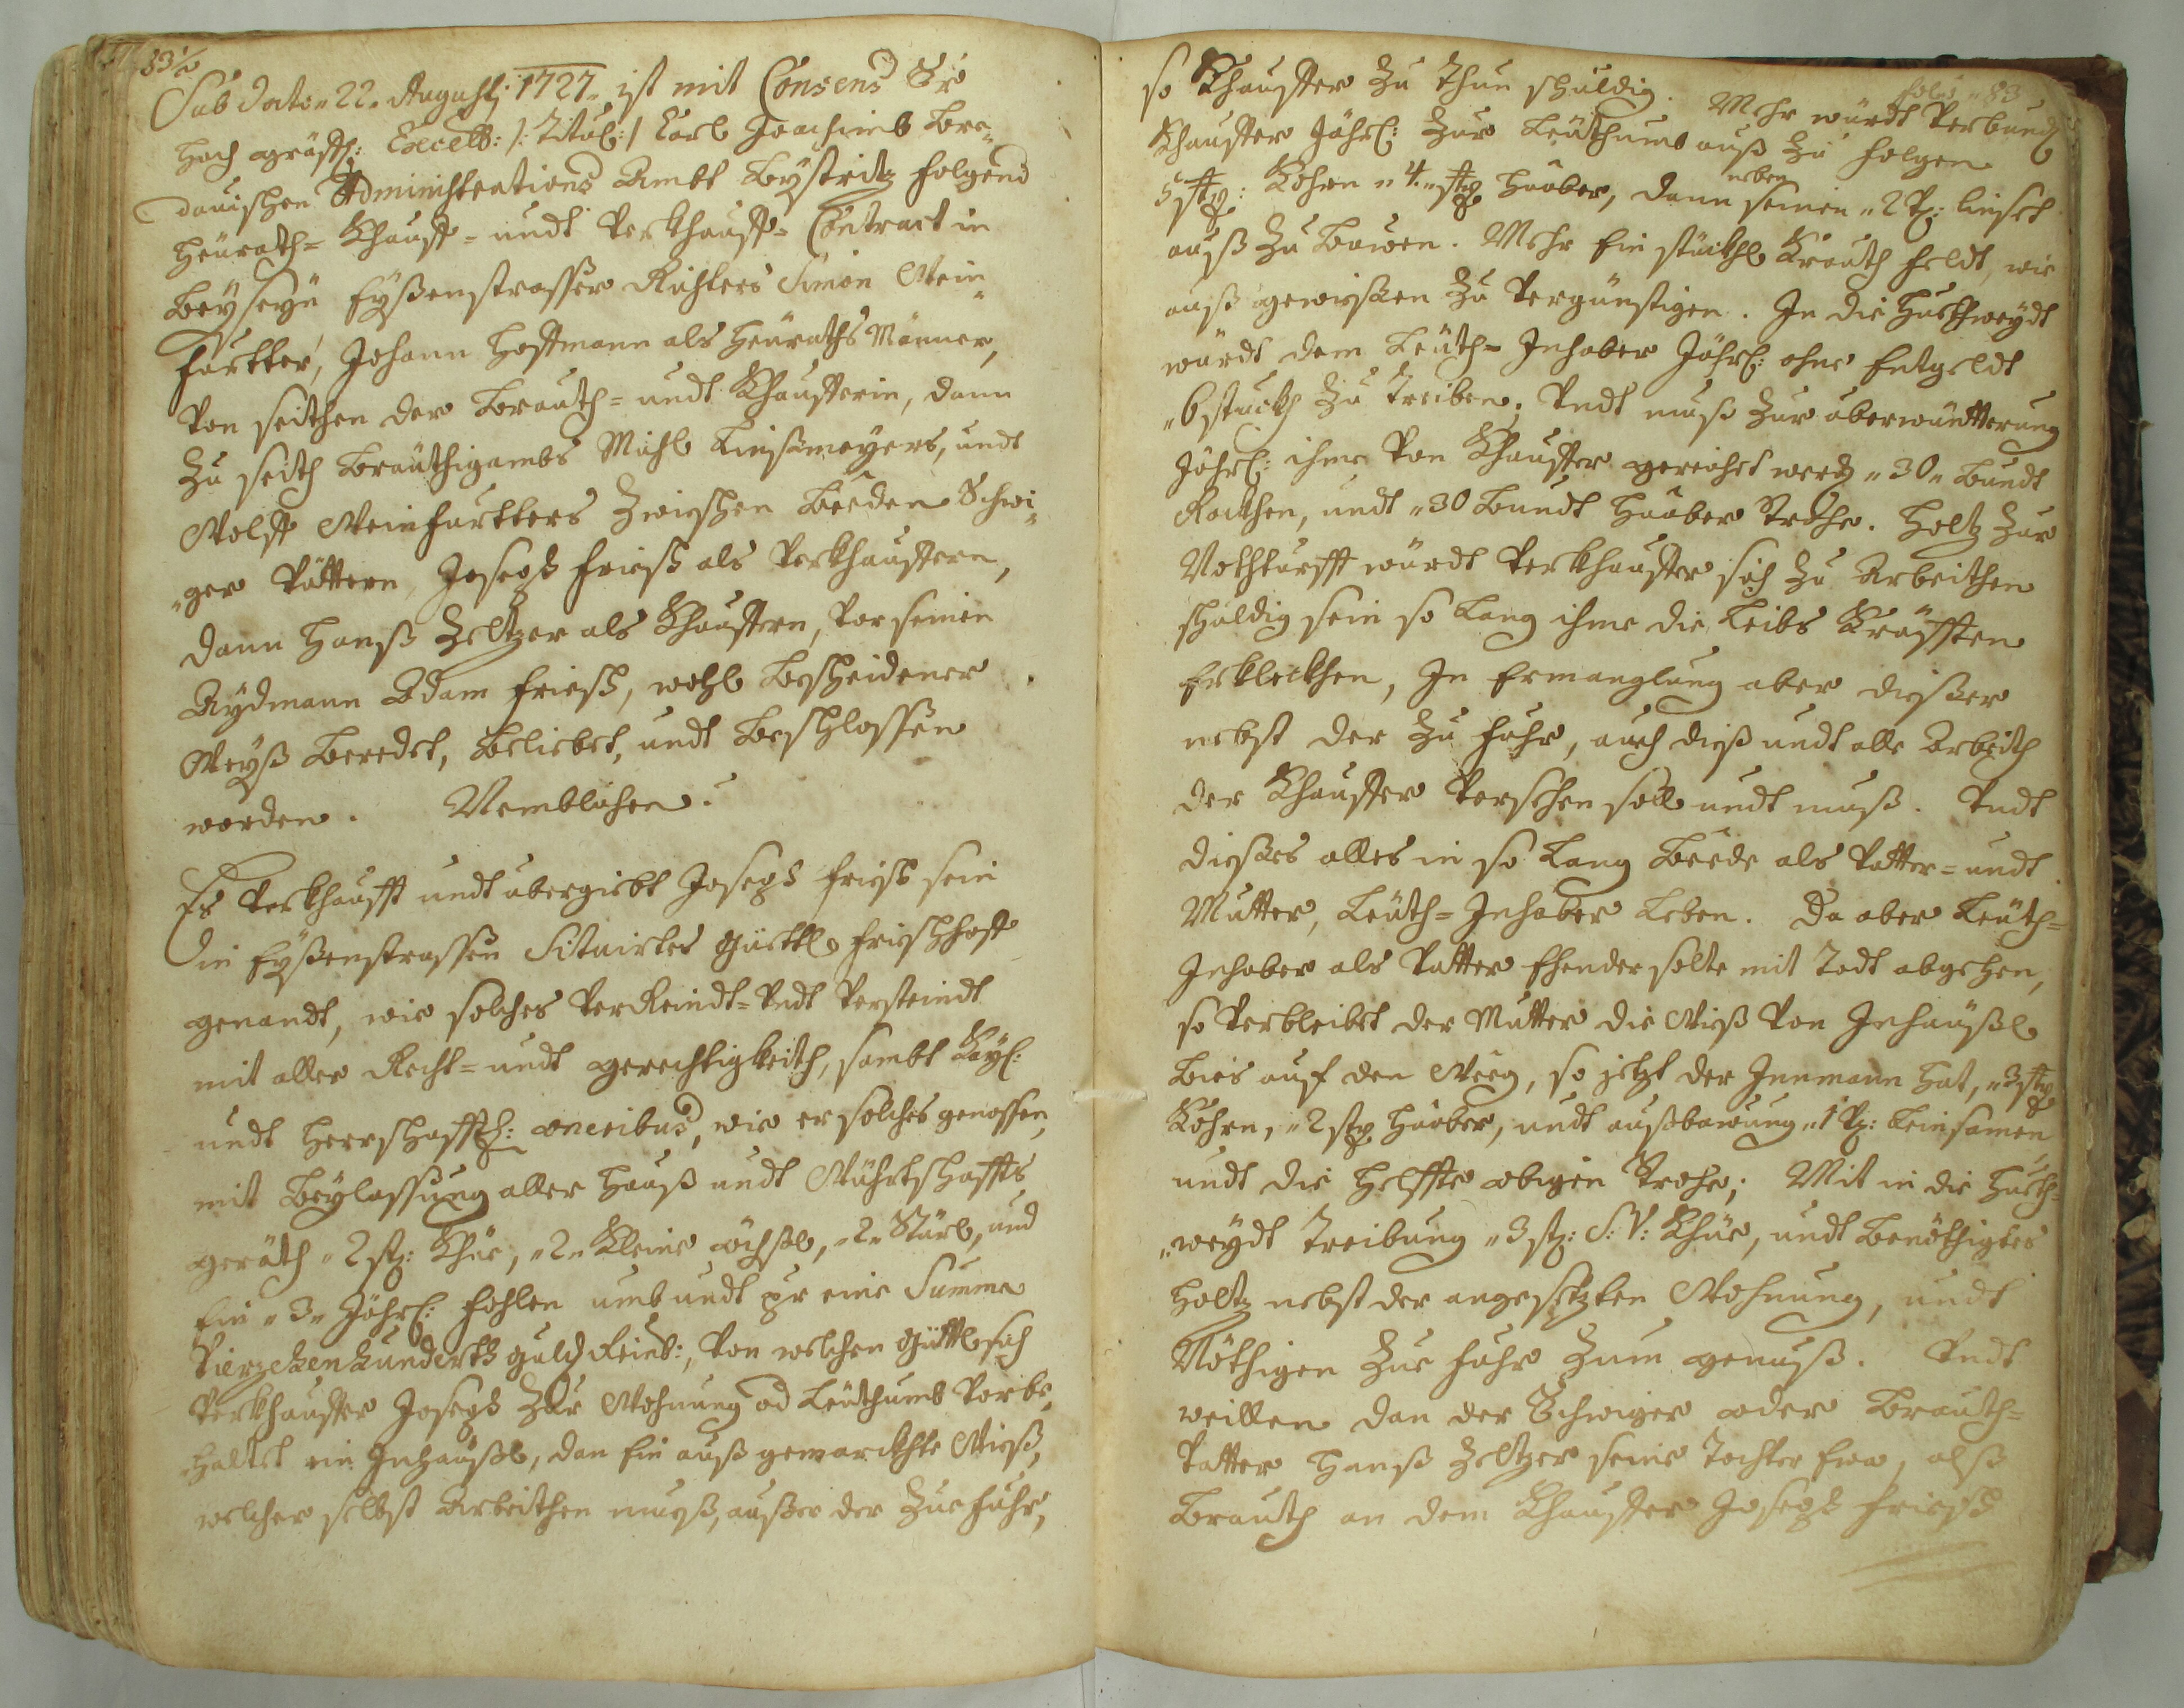 83½
Sub dato „22„ Augusti 1727„ ist mit Consens Sr
Hoch gräffl: Excell: /: Titul: / Carl Joachimb Bre„
dauischen Administrations Ambt Bystritz folgend
Heürath= Khauff= undt Verkhauff= Contract in
Beyseyn Eyßenstrasser Richters Simon Wein„
furtter, Johann Hoffmann als Heüraths Männer,
Von seithen der Brauth= undt Khaufferin, dann
Zu seith Bräuthigambs Michl Linßmeyers, undt
Wolff Weinfurtters Zwischen Beeden Schwi„
„ger Vättern, Joseph Frieß als Verkhauffern,
dann Hanß Zeltzer als Khauffern, vor seinen
Aydmann Adam Frieß, wohl Bescheidener
Weyß Beredet, Beliebet, undt Beschlossen
worden. Nemblichen:
Es Verkhaufft undt übergiebt Joseph Frieß sein
in Eyßenstrassen Situirtes Güettl Frieshhoff
genandt, wie solches Verreindt= Undt Versteindt
mit aller Recht= undt gerechtigkeith, sambt Kayl:
undt Herrschafftl: oneribus, wie er solches genossen,
mit Beylassung aller Hauß undt Würthschaffts
geräth „2 st: Khüe, „2„ Kleine öxßl, „2„ Stürl, und
Ein „3„ Jährl: Fohlen umb undt pr eine Summa
Vierzehenhundert guld Reinl:, Von welchen Güettl sich
Verkhauffer Joseph Zur Wohnung od Leüthumb Vorbe„
„haltet ein Inhäußl, dan Ein auß gemarckhte Wieß,
welcher selbst Arbeithen mueß, außer der Zue fuhr,
folio „83
so Khauffer Zu Thun schuldig. Mehr würdt Verbundt
Khauffer Jährl: Zur Leüthumb auß Zu folgen
5 stp: Kohrn „4„ stp Haaber, dann neben seinen „2 V: linset
auß Zu Bawen. Mehr Ein stückhl Krauth feldt, wie
auß gewiesen Zu Vergünstigen. In die Hueth weydt
würdt dem Leüth= Inhaber Jährl: ohne Entgeldt
„6 stückh Zu Treiben; Undt muß Zur überwüntterung
Jährl: ihme Von Khauffer gereichet werd „30„ Bundt
Rockhen, undt „30 Bundt Haaber Strohe. Holtz Zur
Nothturfft würdt Verkhauffer sich Zu Arbeithen
schuldig sein so Lang ihme die Leibs Kräfften
Erkleckhen, In Ermanglung aber dießer
nebst der Zu fuhr, auch dieß undt alle Arbeith
der Khauffer Versehen soll undt muß. Undt
dießes alles in so Lang Beede als Vatter= undt
Mutter, Leüth= Inhaber Leben. Da aber Leüth=
Inhaber als Vatter Ehender solte mit Todt abgehen,
so Verbleibet der Mutter die Wieß Von Inhäußl
Bies auf den Weeg, so jetzt der Innmann hat, „3 stp
Kohrn, „2 stp Haaber, undt außbawung „1 V: Leinsamen
undt die Helffte obigen Strohe; Mit in die Hueth„
„weydt Treibung „3 st: S: V: Khüe, undt Benöthigtes
Holtz nebst der angesetzten Wohnung, undt
Nöthigen Zue fuhr Zum genuß. Undt
weillen dan der Schwiger oder Brauth=
Vatter Hanß Zeltzer seine Tochter Eva, alß
Brauth an dem Khauffer Joseph Frieß